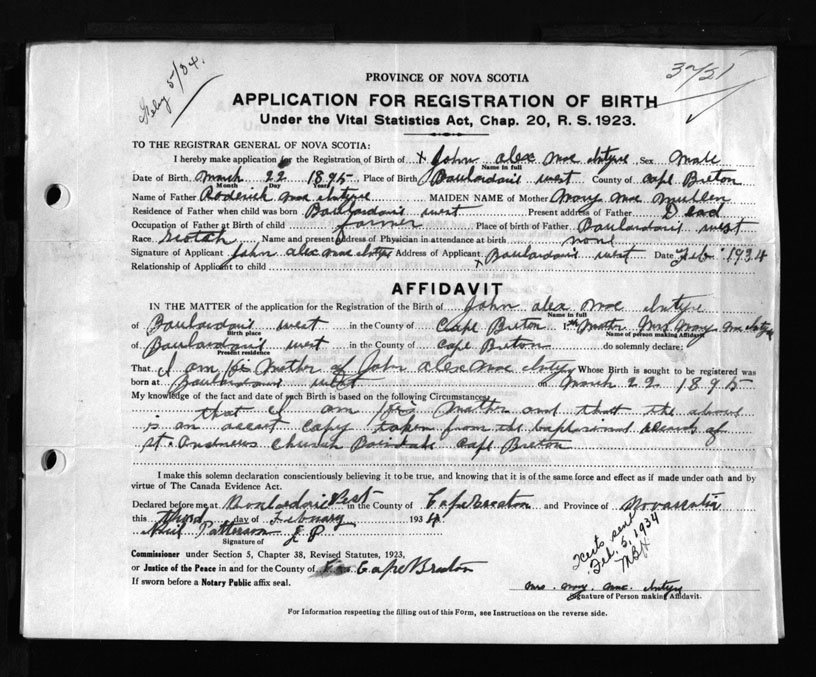 Feby 5/34.
3751
PROVINCE OF NOVA SCOTIA
APPLICATION FOR REGISTRATION OF BIRTH
Under the Vital Statistics Act, Chap. 20, R. S. 1923.
TO THE REGISTRAR GENERAL OF NOVA SCOTIA:
I hereby make application for the Registration of Birth of x John alex Mac Intyre Sex Male
Name in full
Date of Birth March 22 1895. Place of Birth Boulardari west County of Cape Breton
Month Day Year
Name of Father Roderick mac Intyre MAIDEN NAME of Mother Mary Mac Mullen
Residence of Father when child was born Boulardari west Present address of Father Dead
Occupation of Father at Birth of child farmer Place of birth of Father Boulardari west
Race scotch Name and present address of Physician in attendance at birth none
Signature of Applicant John alex mac Intyre Address of Applicant x Boulardari west Date Feb 1934
Relationship of Applicant to child
AFFIDAVIT
IN THE MATTER of the application for the Registration of the Birth of John alex Mac Intyre
Name in full
of Boulardari west in the County of Cape Breton I, the Mother Mrs Mary Mac Intyre
Birth place Name of person making Affidavit
of Boulardari west in the County of Cape Breton do solemnly declare:
Present residence
That I am his Mother of John alex Mac Intyre Whose Birth is sought to be registered was
born at Boulardari west March 22 1895
My knowledge of the fact and date of such Birth is based on the following Circumstances:
that I am his Mother and that the above
is an copy taken from the of
st. Andrews Church Cape Breton
I make this solemn declaration conscientiously believing it to be true, and knowing that it is of the same force and effect as if made under oath and by
virtue of The Canada Evidence Act.
Declared before me at Boulardari West in the County of Cape Breton and Province of Nova scotia
this third day of February 1934.
Neil Patterson J P
Signature of
Certs sent
Feb. 5, 1934
Commissioner under Section 5, Chapter 38, Revised Statutes, 1923,
or Justice of the Peace in and for the County of Cape Breton
If sworn before a Notary Public affix seal.
mrs. mary. mac. Intyre
Signature of Person making Affidavit.
For Information respecting the filling out of this Form, see Instructions on the reverse side.